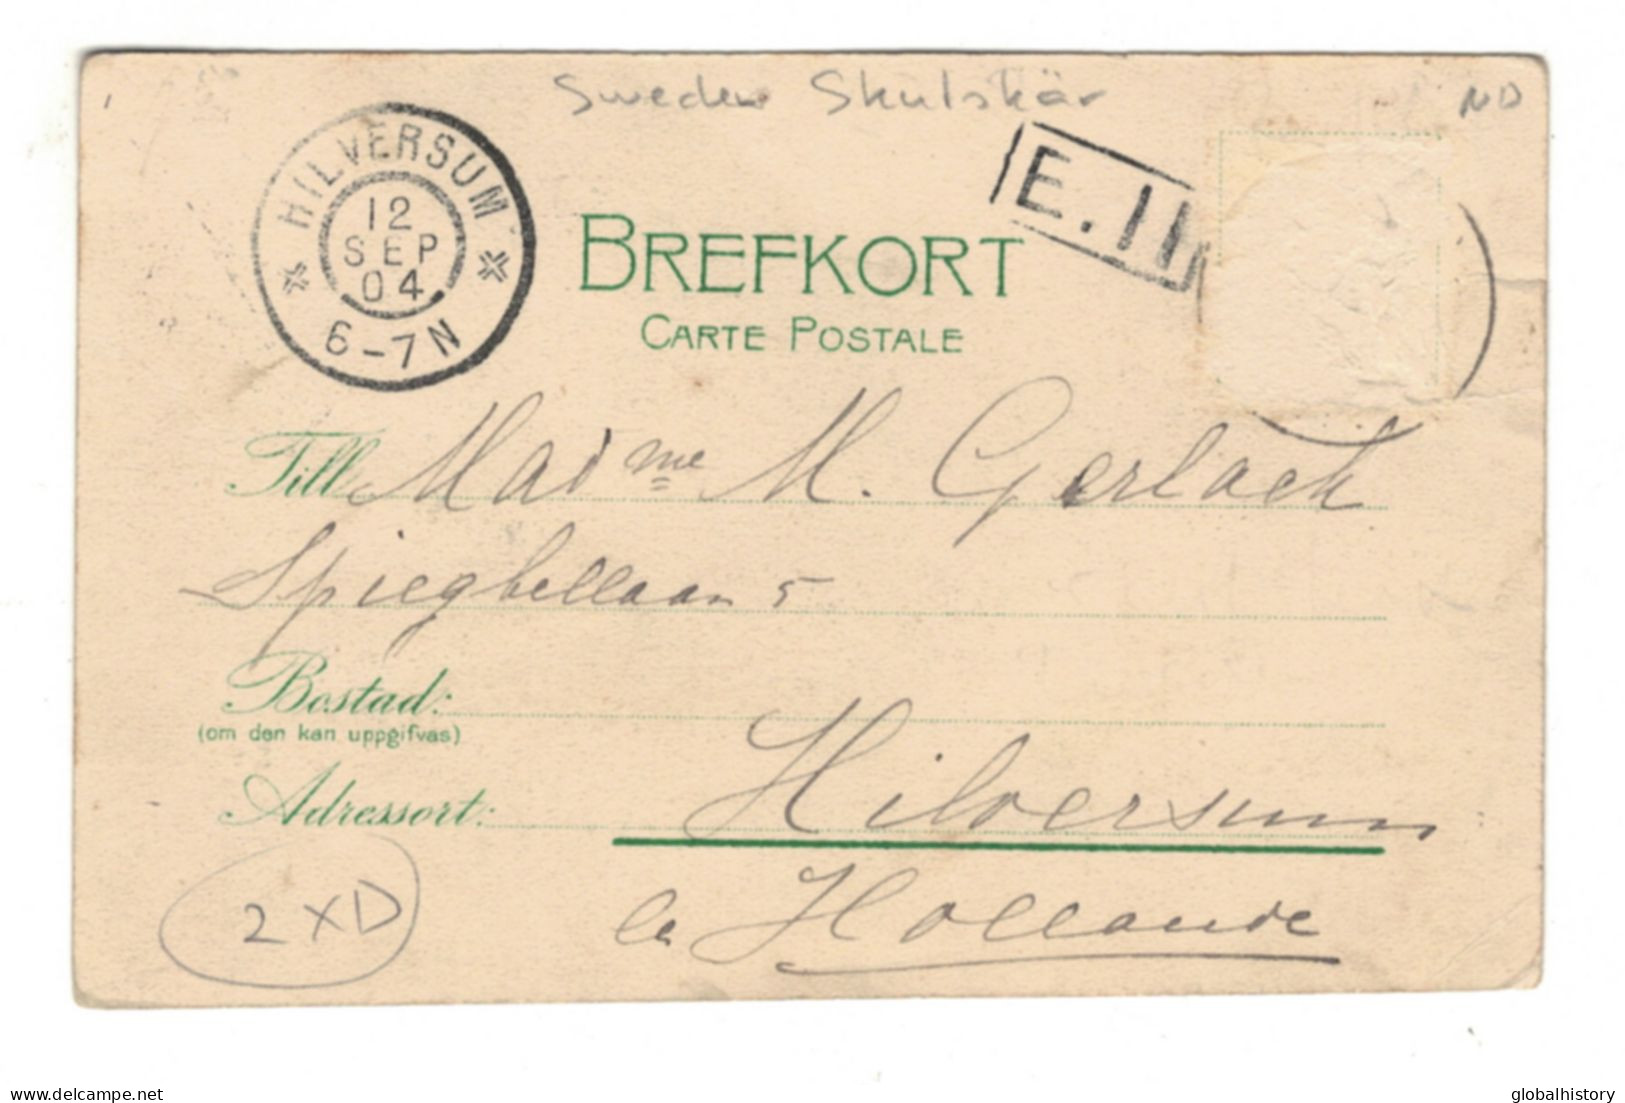 Sweden Skutskär
ND
HILVERSUM
12
SEP
04
6-7N
E.11
BREFKORT
CARTE POSTALE
Till Madme M. Gerlach
Spieghellaan 5
Bostad:
(om den kan uppgifvas)
Adressort: Hilversum
la Hollande
2 XD
delcampe.net
globalhistory